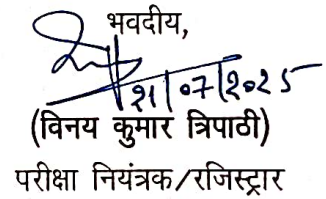 भवदीय,
21/07/2025
(विनय कुमार त्रिपाठी)
परीक्षा नियंत्रक/रजिस्ट्रार